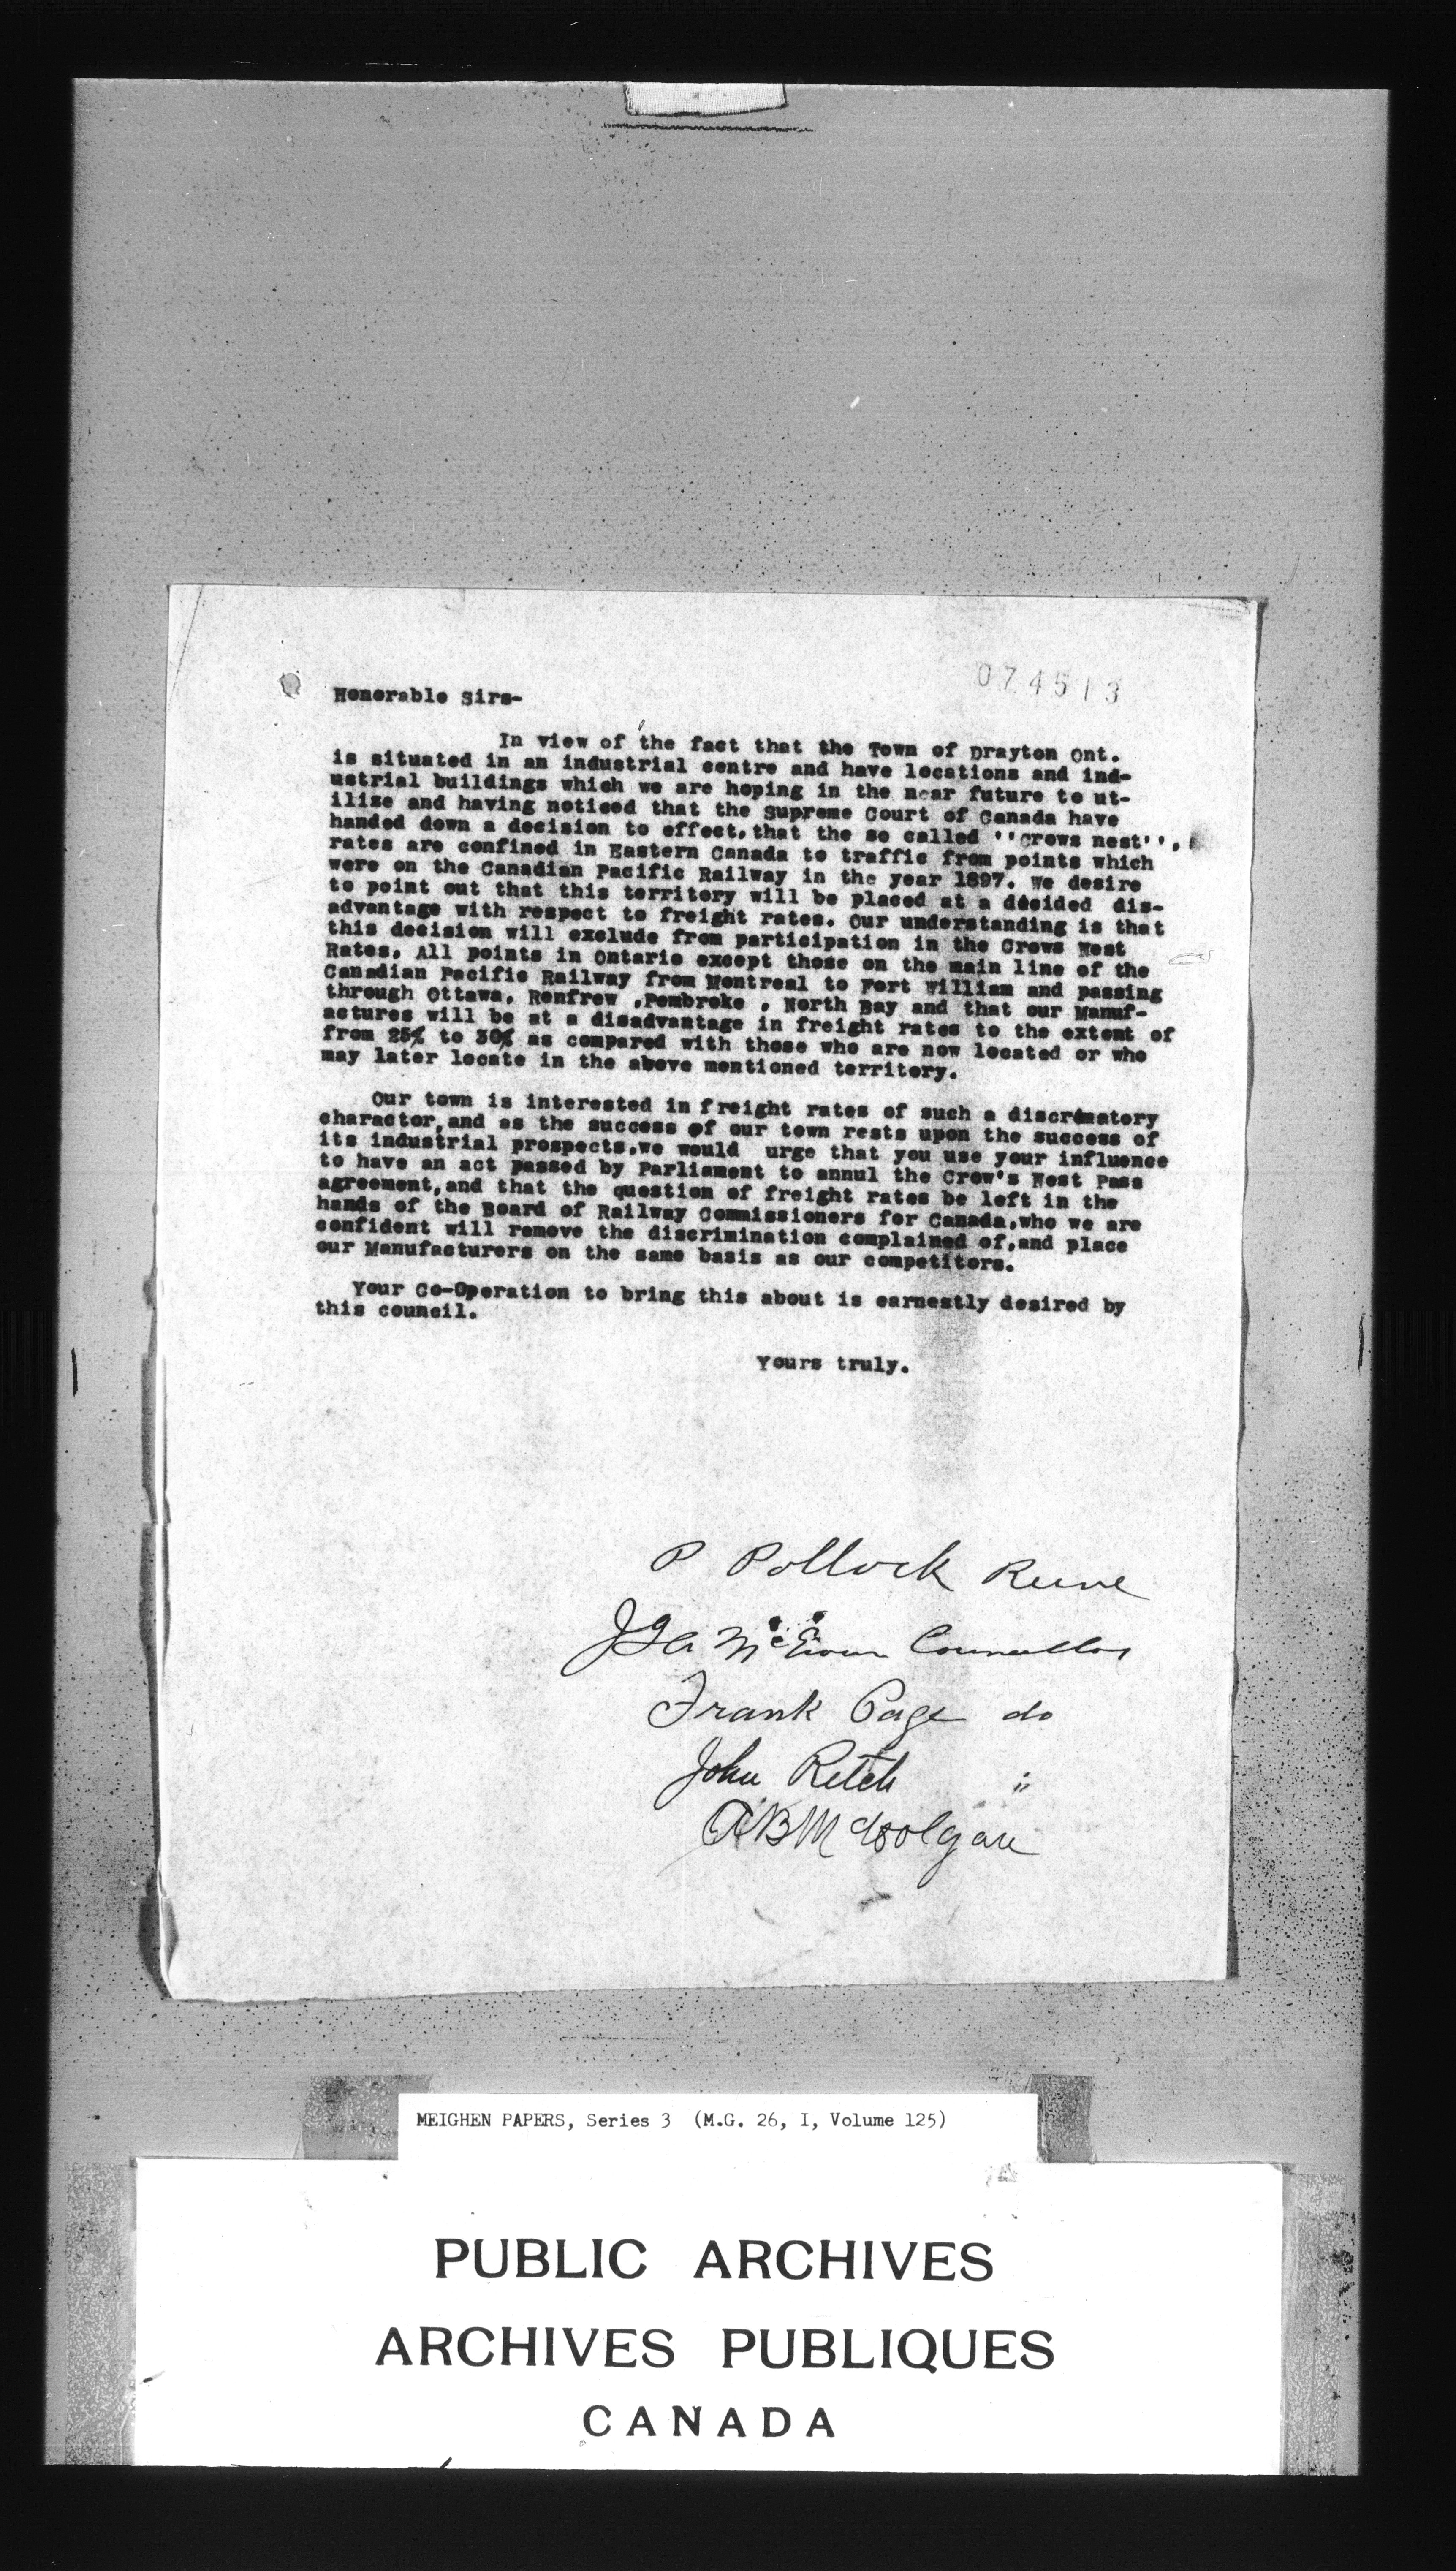 074513
Honorable Sirs-
In view of the fact that the Town of Drayton Ont.
is situated in an industrial centre and have locations and ind-
ustrial buildings which we are hoping in the near future to ut-
ilize and having noticed that the Supreme Court of Canada have
handed down a decision to effect, that the so called ''Crows nest''.
rates are confined in Eastern Canada to traffic from points which
were on the Canadian Pacific Railway in the year 1897. We desire
to point out that this territory will be placed at a decided dis-
advantage with respect to freight rates. Our understanding is that
this decision will exclude from participation in the Crows Nest
Rates. All points in Ontario except those on the main line of the
Canadian Pacific Railway from Montreal to Fort William and passing
through Ottawa, Renfrew ,Pembroke , North Bay and that our Manuf-
actures will be at a disadvantage in freight rates to the extent of
from 25% to 30% as compared with those who are now located or who
may later locate in the above mentioned territory.
Our town is interested in freight rates of such a discrematory
charactor,and as the success of our town rests upon the success of
its industrial prospects,we would urge that you use your influence
to have an act passed by Parliament to annul the Crow's Nest Pass
agreement,and that the question of freight rates be left in the
hands of the Board of Railway Commissioners for Canada,who we are
confident will remove the discrimination complained of,and place
our Manufacturers on the same basis as our competitors.
Your Co-Operation to bring this about is earnestly desired by
this council.
Yours truly.
P Pollock Reeve
McEwen Councillor
Frank Page do
John Ritch "
MEIGHEN PAPERS, Series 3 (M.G. 26, I, Volume 125)
PUBLIC ARCHIVES
ARCHIVES PUBLIQUES
CANADA